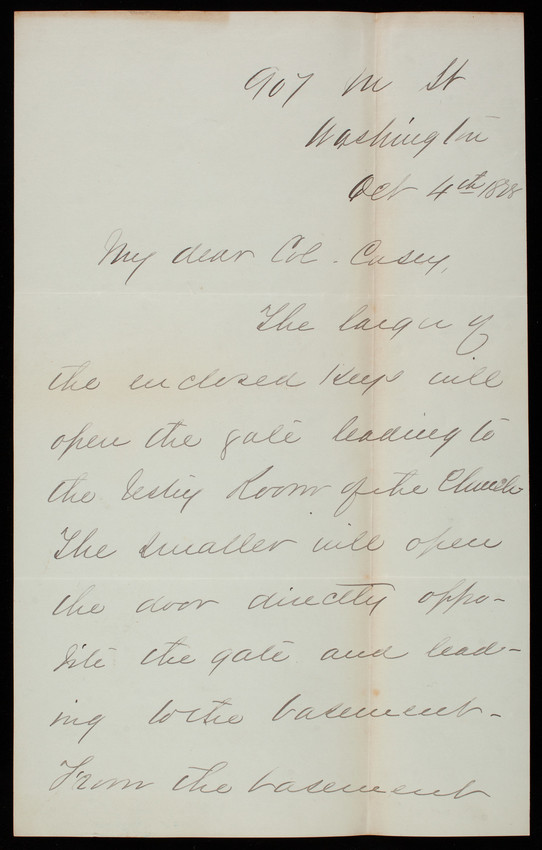 907 M St
Washington
Oct 4th 1888
My dear Col. Casey,
The larger of
the enclosed keys will
open the gate leading to
the Vestry Room of the Church
The smaller will open
the door directly oppo-
site the gate and lead-
ing to the basement-
From the basement